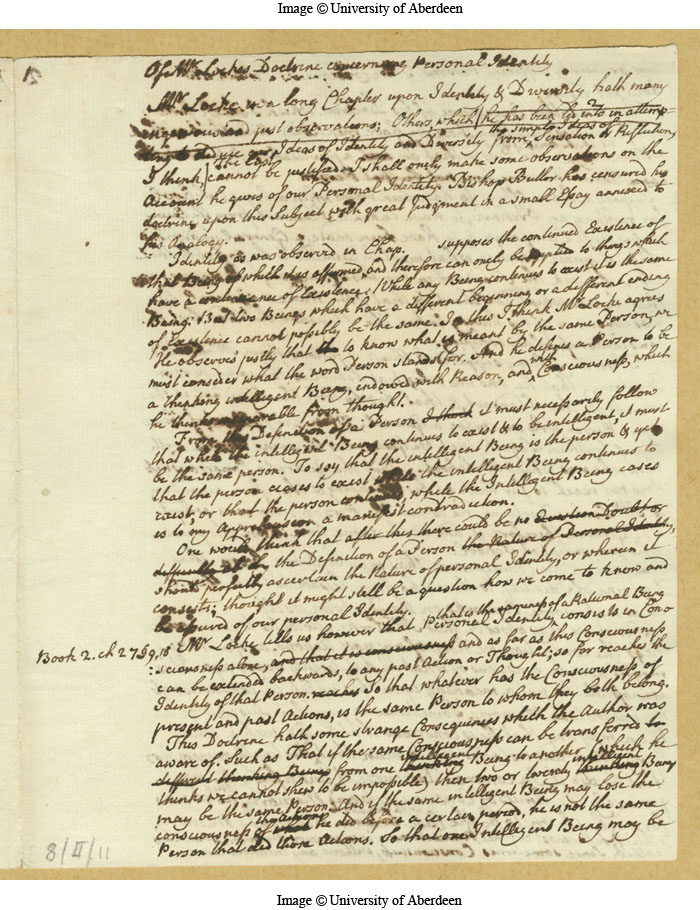 Image © University of Aberdeen
1
Of Mr Lockes Doctrine concerning Personal Identity
Mr Locke in a long Chapter upon Identity & Diversity hath many
ingenious and just observations; Others, which
he has been led into in attemp-
ting to deduce our Ideas of Identity and Diversity from
the simple Ideas of
Sensation & Reflection
I think,
cannot be justified. I shall only make some observations on the
Account he gives of our Personal Identity. Bishop Butler has censured his
doctrine upon this Subject with great Judgment in a small Essay annexed to
his Analogy.
Identity as was observed in Chap. supposes the continued Existence of
that Being of which it is affirmed, and therefore can only be applied to things which
have a continuance of Existence. While any Being continues to exist it is the same
Being: But two Beings which have a different beginning or a different ending
of Existence cannot possibly be the same. In this I think Mr Locke agrees
He observes justly that to know what is meant by the same Person, we
must consider what the word Person stands for. And he defines a Person to be
a thinking intelligent Being, endowed with Reason, and with Consciousness, which
he thinks inseparable from thought.
From this Definition of a Person I think it must necessarily follow
that while the intelligent Being continues to exist & to be intelligent, it must
be the same person. To say that the intelligent Being is the person & yet
that the person ceases to exist while the intelligent Being continues to
exist, or that the person continues, while the Intelligent Being ceases
is to my Apprehension a manifest contradiction.
One would think that after this there could be no Question Doubt or
difficulty the Definition of a Person the Nature of Personal Identity,
should perfectly ascertain the Nature of personal Identity, or wherein it
consists; thought it might still be a question how we come to know and
be assured of our personal Identity.
Book 2. ch 27 § 9, 15
Mr Locke tells us however that
that is the sameness of a Rational Being
Personal Identity consists in Con-
:sciousness alone, and that it is consciousness and as far as this Consciousness
can be extended backwards, to any past Action or Thought; so far reaches the
Identity of that Person. reaches So that whatever has the Consciousness of
present and past Actions, is the same Person to whom they both belong.
This Doctrine hath some strange Consequences which the Author was
aware of. Such as That if the same Consciousness can be transferred to
different thinking Beings from one thinking
intelligent
Being to another (which he
thinks we cannot shew to be impossible) then two or twenty thinking
intelligent
Beings
may be the same Person. And if the same intelligent Being may lose the
consciousness of what
the actions
he did before a certain period, he is not the same
Person that did those Actions. So that one Intelligent Being may be
8/II/11
Image © University of Aberdeen